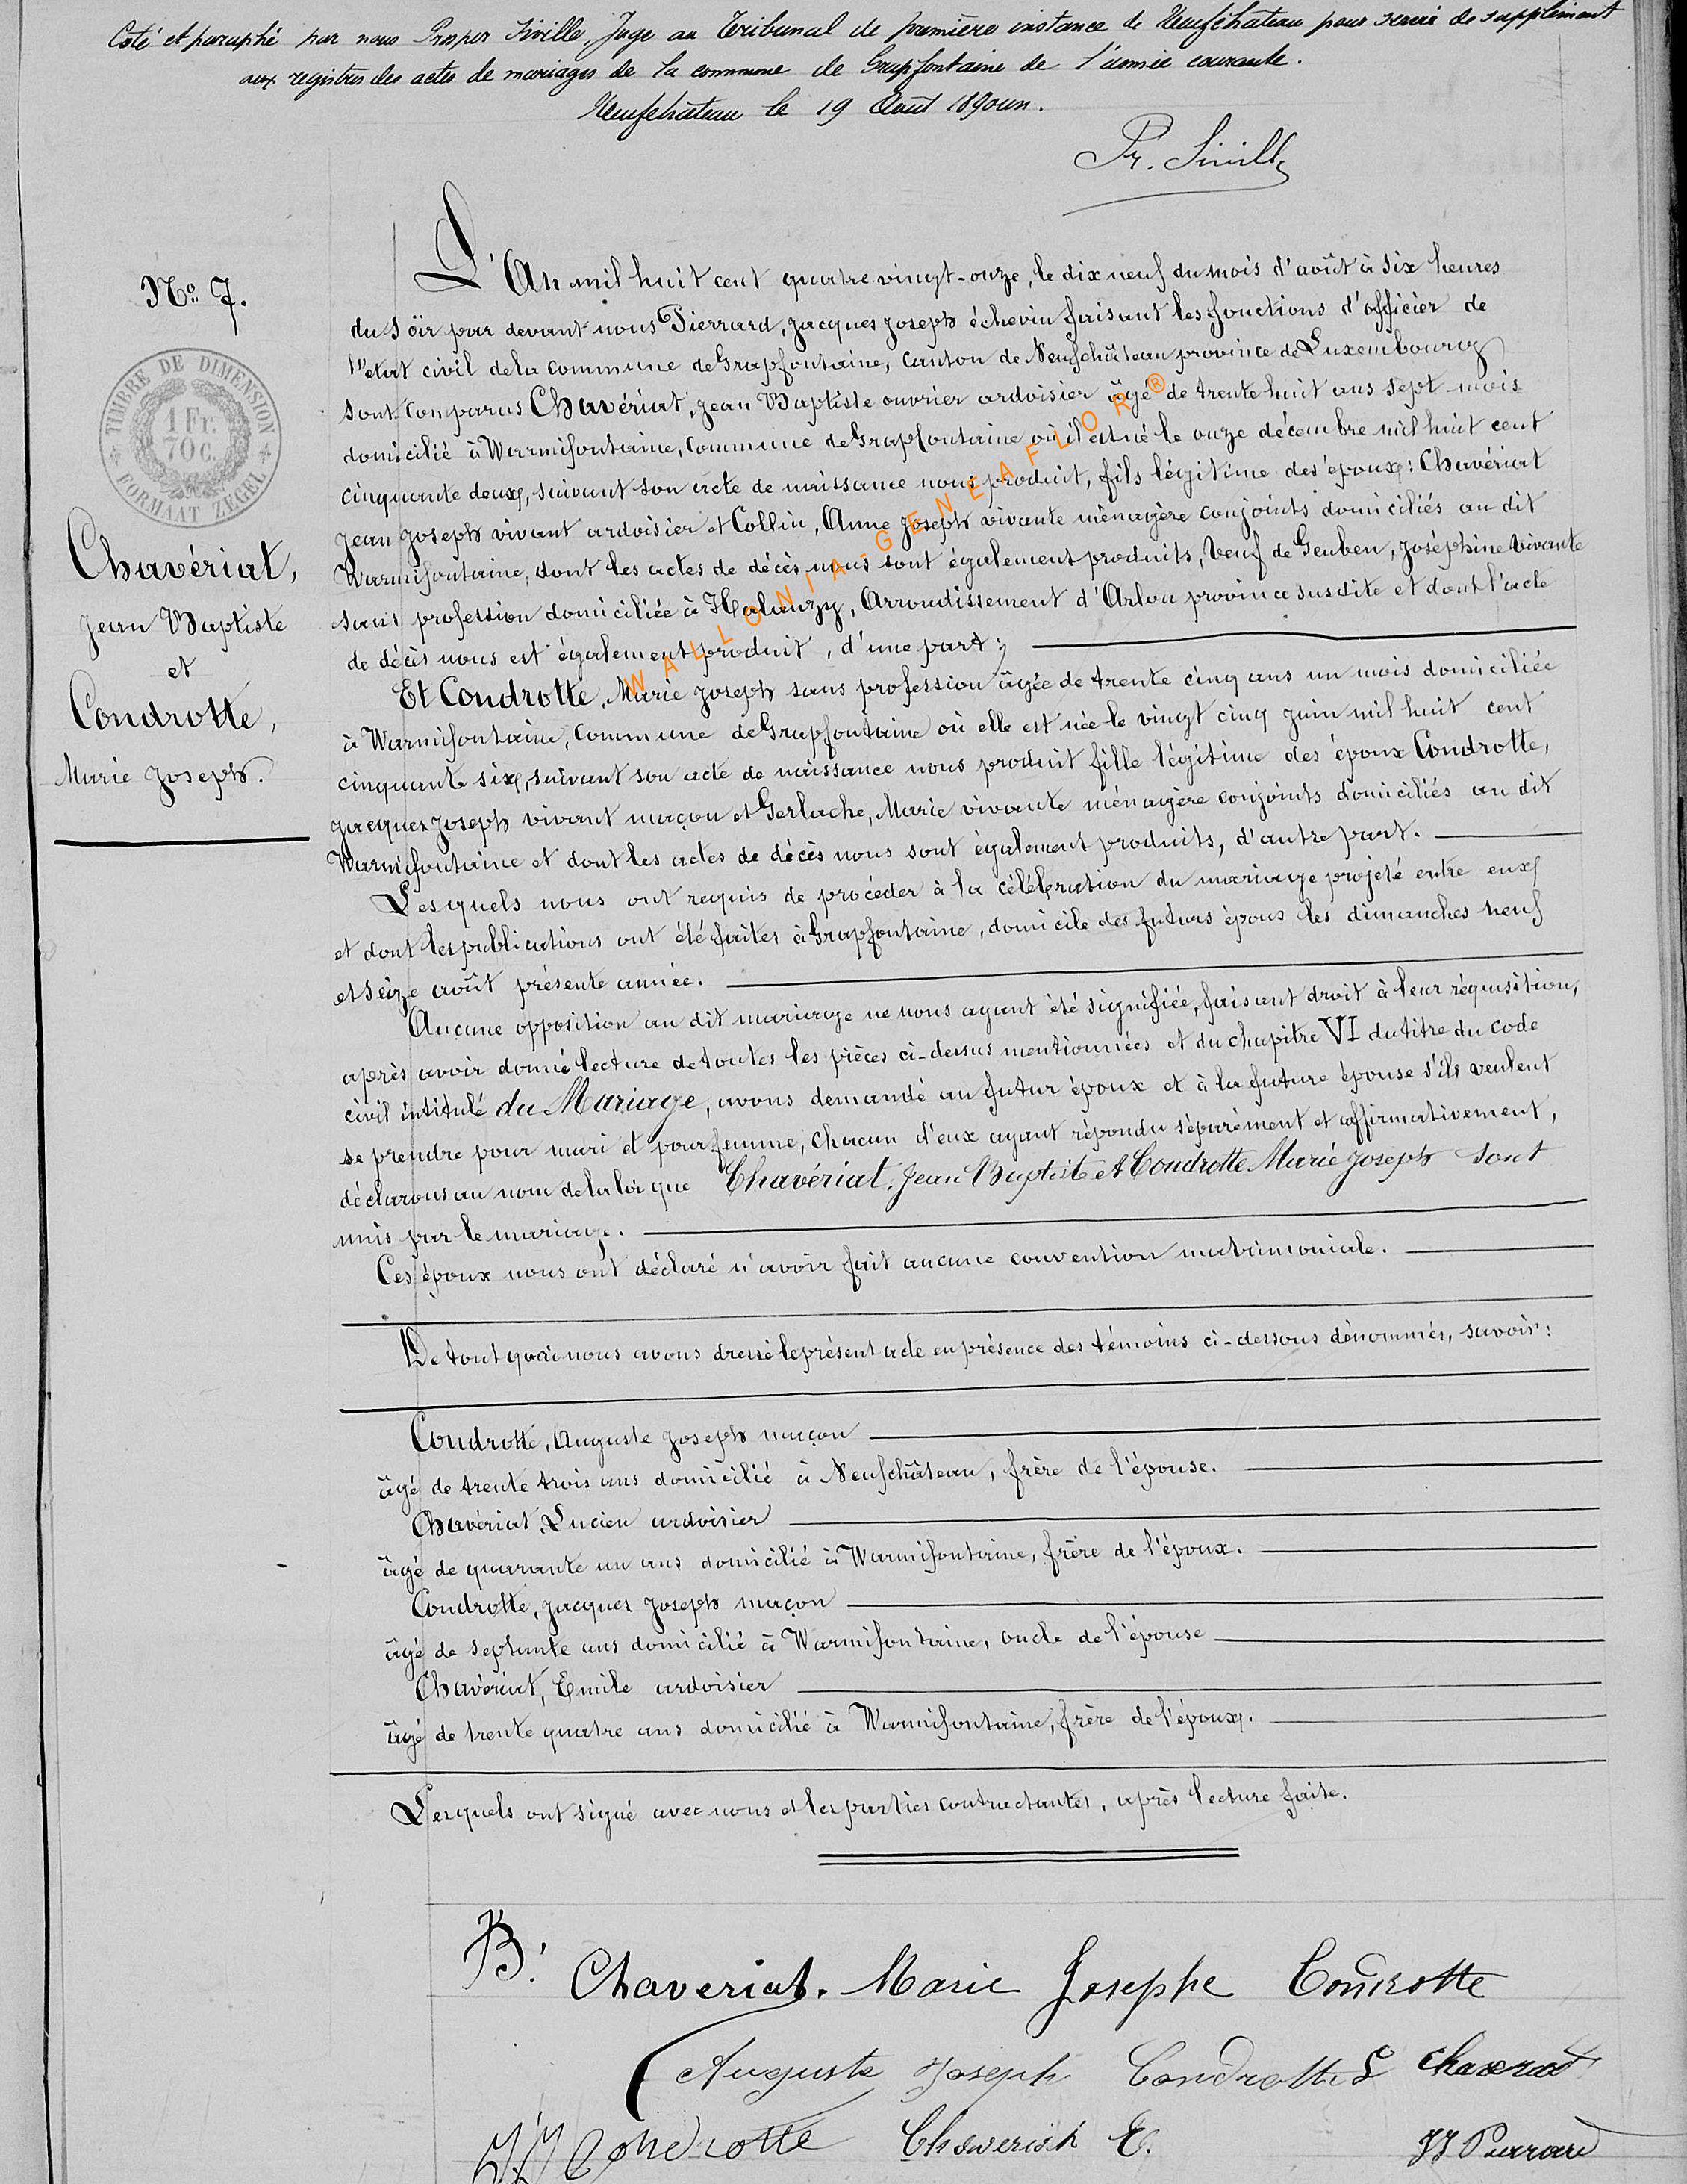 Coté et paraphé par nous Prosper Siville, Juge au Tribunal de première instance de Neufchâteau pour servir de supplément
aux registres des actes de mariages de la commune de Grapfontaine de l'année courante.
Neufchâteau le 19 Août 1890un.
Pr. Siville
No. 7.
TIMBRE DE DIMENSION
1 Fr.
70 c.
FORMAAT ZEGEL
Chavériat,
Jean Baptiste
et
Condrotte,
Marie Joseph.
L'An mil huit cent quatre vingt-onze, le dix neuf du mois d'août à six heures
du soir par devant nous Pierrard, Jacques Joseph échevin faisant les fonctions d'officier de
l'état civil de la commune de Grapfontaine, Canton de Neufchâteau province de Luxembourg
sont comparus Chavériat, Jean Baptiste ouvrier ardoisier âgé de trente huit ans sept mois
domicilié à Warmifontaine, Commune de Grapfontaine où il est né le onze décembre mil huit cent
cinquante deux, suivant son acte de naissance nous produit, fils légitime des époux: Chavériat
Jean Joseph vivant ardoisier et Collin, Anne Joseph vivante ménagère conjoints domiciliés au dit
Warmifontaine, dont les actes de décès nous sont également produits, Veuf de Geuben, Joséphine vivante
sans profession domiciliée à Halanzy, Arrondissement d'Arlon province susdite et dont l'acte
de décès nous est également produit, d'une part;
Et Condrotte, Marie Joseph sans profession âgée de trente cinq ans un mois domiciliée
à Warmifontaine, Commune de Grapfontaine où elle est née le vingt cinq juin mil huit cent
cinquante six, suivant son acte de naissance nous produit fille légitime des époux Condrotte,
Jacques Joseph vivant maçon et Gerlache, Marie vivante ménagère conjoints domiciliés au dit
Warmifontaine et dont les actes de décès nous sont également produits, d'autre part.
Lesquels nous ont requis de procéder à la célébration du mariage projeté entre eux
et dont les publications ont été faites à Grapfontaine, domicile des futurs épous les dimanches neuf
et seize août présente année.
Aucune opposition au dit mariage ne nous ayant été signifiée, faisant droit à leur réquisition,
après avoir donné lecture de toutes les pièces ci-dessus mentionnées et du chapitre VI du titre du code
civil intitulé du Mariage, avons demandé au futur époux et à la future épouse s'ils veulent
se prendre pour mari et pour femme, chacun d'eux ayant répondu séparément et affirmativement,
déclarons au nom de la loi que Chavériat, Jean Baptiste et Condrotte Marie Joseph sont
unis par le mariage.
Ces époux nous ont déclaré n'avoir fait aucune convention matrimoniale.
De tout quoi nous avons dressé le présent acte en présence des témoins ci-dessous dénommés, savoir:
Condrotte, Auguste Joseph maçon
âgé de trente trois ans domicilié à Neufchâteau, frère de l'épouse.
Chavériat, Lucien ardoisier
âgé de quarante un ans domicilié à Warmifontaine, frère de l'époux.
Condrotte, Jacques Joseph maçon
âgé de septante ans domicilié à Warmifontaine, oncle de l'épouse
Chavériat, Emile ardoisier
âgé de trente quatre ans domicilié à Warmifontaine, frère de l'époux.
Lesquels ont signé avec nous et les parties contractantes, après lecture faite.
B. Chaveriat. Marie Josephe Condrotte
Auguste Joseph Condrotte L Chaveriat
JJ Condrotte Chaveriat E. JJ Pierrard
WALLONIA-GENEAFLOR®